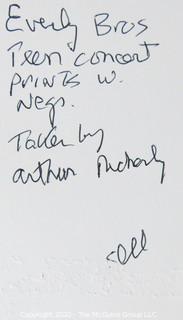 Everly Bros
Teen concert
prints w.
Negs.
Taken by
arthur
Copyright 2020 - The McGuire Group LLC